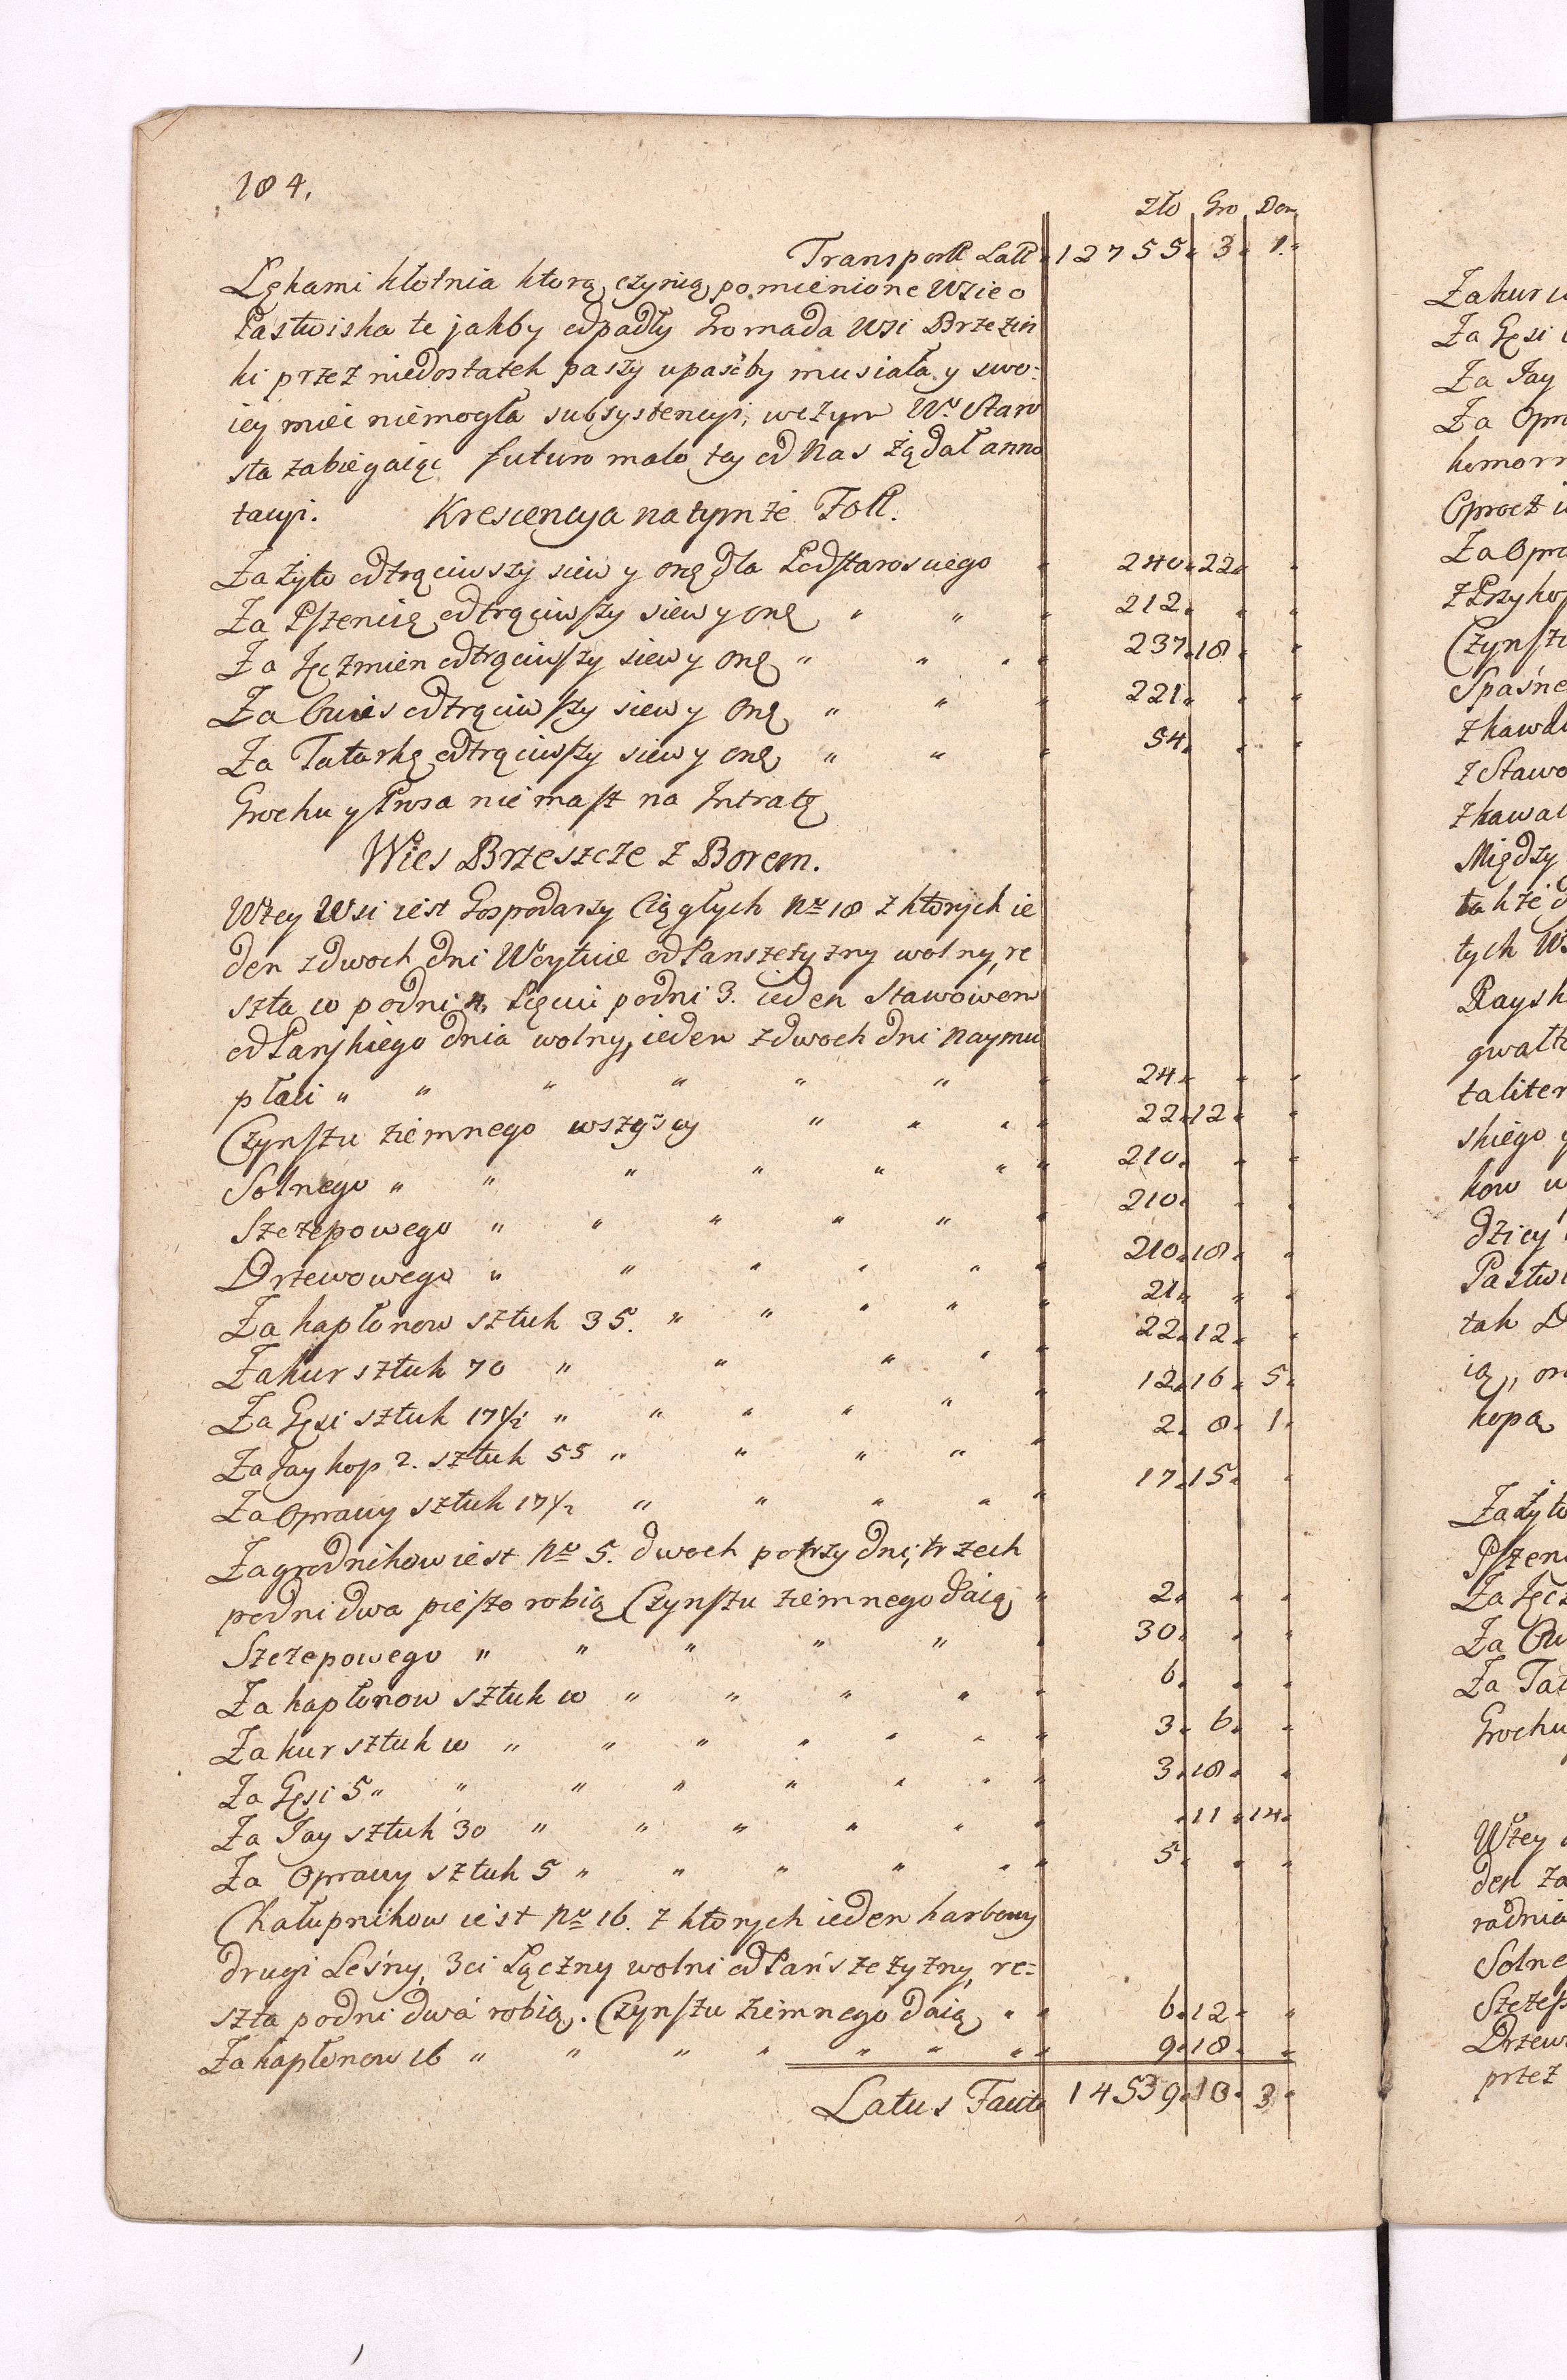 184.
Zło Gro Den
Transportt Latt 12755. 3. 1.
Łękami kłotnia ktorą czynią pomienione Wsie o
Pastwiska te jakby odpadły Gromada Wsi Brzezin
ki przez niedostatek paszy upaśćby musiała y swo:
iey mieć niemogła subsystencyi, wczym Wny Staro
sta zabiegaiąc futuro malo tey od Nas żądał anno
tacyi. Krescencya natymże Foll.
Za Zyto odtrąciwszy siew y onę dla Podstarosciego 240. 22.
Za Pszenicę odtrąciwszy siew y onę " " 212.
Za Jęczmien odtrąciwszy siew y onę " " 237. 18.
Za Owies odtrąciwszy siew y onę " " 221.
Za Tatarkę odtrąciwszy siew y onę " " 54.
Grochu y Prosa nie masz na Intratę
Wies Brzeszcze z Borem.
Wtey Wsi iest Gospodarzy Ciągłych Nro 18 z ktorych ie
den zdwoch dni Woytuie od Panszczyzny wolny, re
szta 10 podni 4, Pięciu podni 3. ieden Stawowem
od Panskiego dnia wolny, ieden zdwoch dni Naymu
płaci " " " " " " 24.
Czynszu ziemnego wszyscy " " 22. 12.
Solnego " " " " " 210.
Szczepowego " " " " " 210.
Drzewowego " " " " " 210. 18.
Za kapłonow sztuk 35. " " " " 21.
Za kur sztuk 70 " " " " 22. 12.
Za Gęsi sztuk 17 1/2 " " " " " 12. 16. 5.
Za Jay kop 2. sztuk 55 " " " " 2. 8. 1.
Za Oprawy sztuk 17 1/2 " " " " 17. 15.
Zagrodnikow iest Nro 5. dwoch potrzy dni, trzech
podni dwa pieszo robią Czynszu ziemnego daią 2.
Szczepowego " " " " " 30.
Za kapłonow sztuk 10 " " " " 6.
Za kur sztuk 10 " " " " " " 3. 6.
Za Gęsi 5 " " " " " " " 3. 18.
Za Jay sztuk 30 " " " " " 11. 14.
Za Oprawy sztuk 5 " " " " " 5.
Chałupnikow iest Nro 16. z ktorych ieden karbowy
drugi Leśny, 3ci Łączny wolni od Pańszczyzny, re=
szta podni dwa robią. Czynszu ziemnego daią " 6. 12.
Za kapłonow 16 " " " " " " " 9. 18.
Latus Facit 14539. 18. 3.
Za kur
Za Gęsi
Za Jay
Za Opra
komorn
Oprocz
Za Opra
z Przykop
Czynszu
Spaśne
z kawał
z Stawo
z kawał
Między
także
tych Ws
Raysk
gwałt
taliter
skiego
kow
dzicy
Pastwi
tak
ią,,
kopą
Za Zyto
Pszen
Za Jęcz
Za Ow
Za Tat
Grochu
Wtey
den za
radnia
Solne
Szczep
Drzew
przez